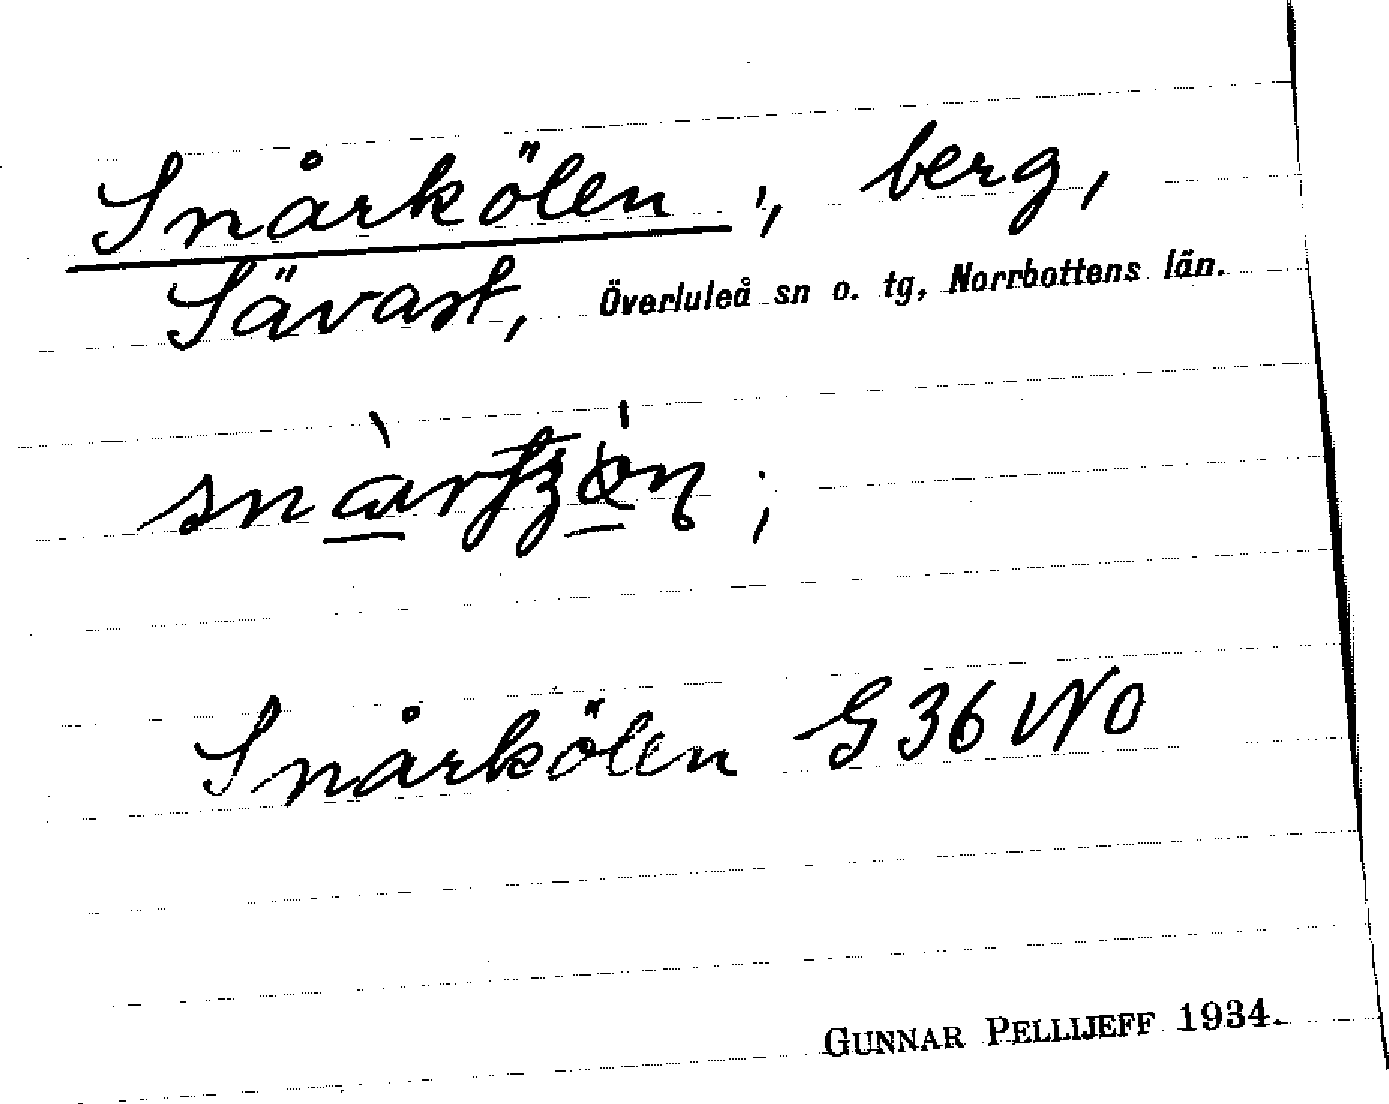 Snårkölen ;, berg,
Sävast, Överluleå sn o. tg, Norrbottens län.
Snårkölen G 36 NO
GUNNAR PELLIJEFF 1934.